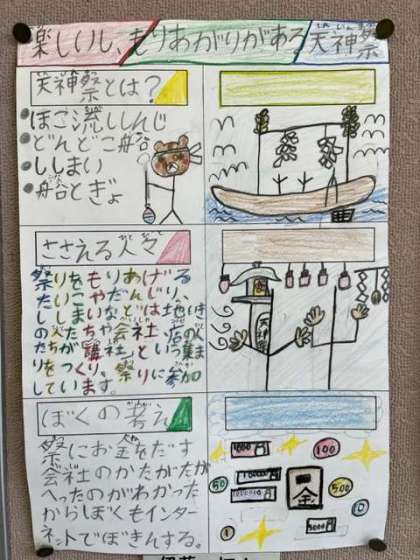 楽しいし、もりあがりがある天神祭
天神祭とは？
ほこ流ししんじ
どんどこ船
ししまい
船とぎょ
ささえる人々
祭りをもりあげる
たいこやだんじり、
ししまいなどは地いき
の会社店の人
たちが講社という集ま
りを祭りに参加
しています。
ぼくの考え
祭にお金をだす
会社のかたがたが
へったのがわかった
からぼくもインター
ネットでぼきんする。
1000円
100
50
10000円
金
500
1
5000円
10